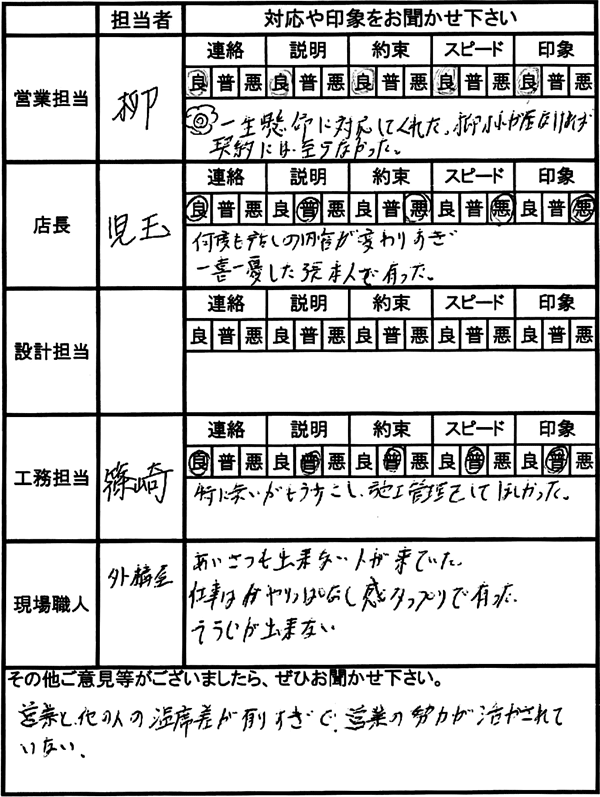 担当者 対応や印象をお聞かせ下さい
営業担当 柳
連絡 説明 約束 スピード 印象
良 普 悪 良 普 悪 良 普 悪 良 普 悪 良 普 悪
一生懸命に対応してくれた。柳さんが居なければ
契約には至らなかった。
店長 児玉
連絡 説明 約束 スピード 印象
良 普 悪 良 普 悪 良 普 悪 良 普 悪 良 普 悪
何度も話しの内容が変わりすぎ
一喜一憂した張本人で有った。
設計担当
連絡 説明 約束 スピード 印象
良 普 悪 良 普 悪 良 普 悪 良 普 悪 良 普 悪
工務担当 篠崎
連絡 説明 約束 スピード 印象
良 普 悪 良 普 悪 良 普 悪 良 普 悪 良 普 悪
特に無いがもう少こし、施工管理をしてほしかった。
現場職人 外構屋
あいさつも出来ない人が来ていた。
仕事はやりっぱなし感たっぷりで有った
そうじが出来ない
その他ご意見等がございましたら、ぜひお聞かせ下さい。
営業と他の人の温度差が有りすぎで、営業の努力が活かされて
いない。